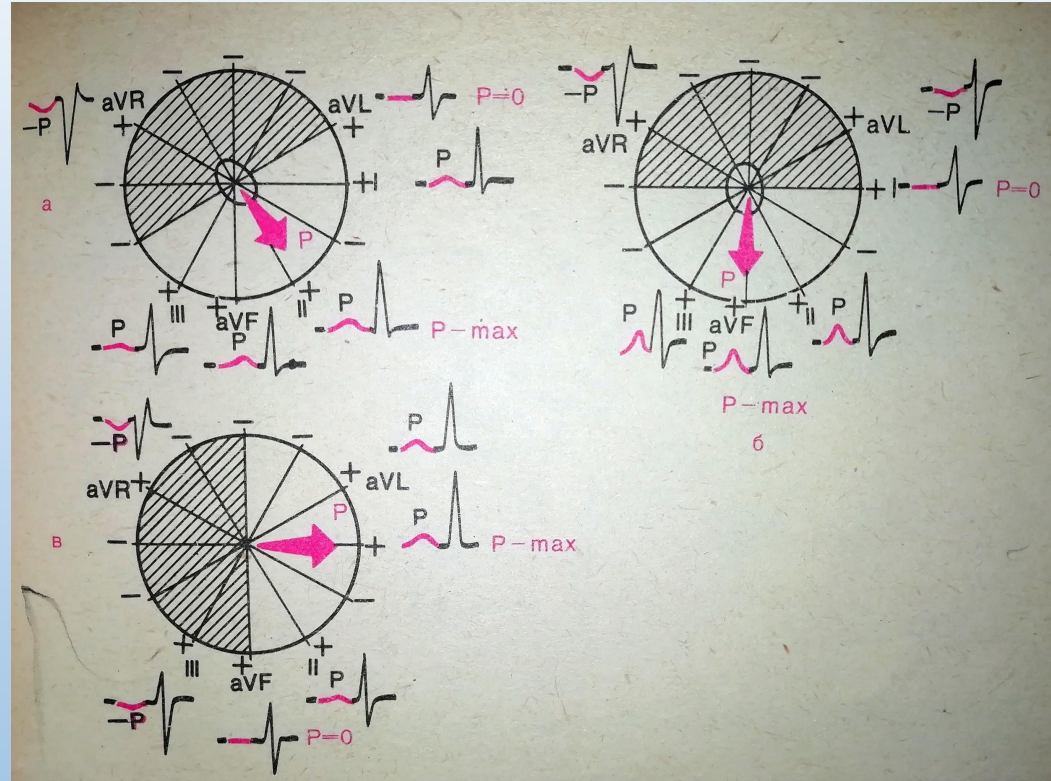 aVR
–P
+
–
–
–
aVL
+
P=0
P
+I
–
–
–
P
III
+
aVF
+
II
+
P
P
P
P–max
а
–P
aVR
+
–
–
–
+
aVL
–P
+I
P=0
–
–
–
P
P
III
+
aVF
+
II
+
P
P
P–max
б
–P
aVR
+
–
–
–
+
aVL
P
P
P
P–max
+
–
–
–
в
III
+
aVF
+
II
+
P
–P
P=0